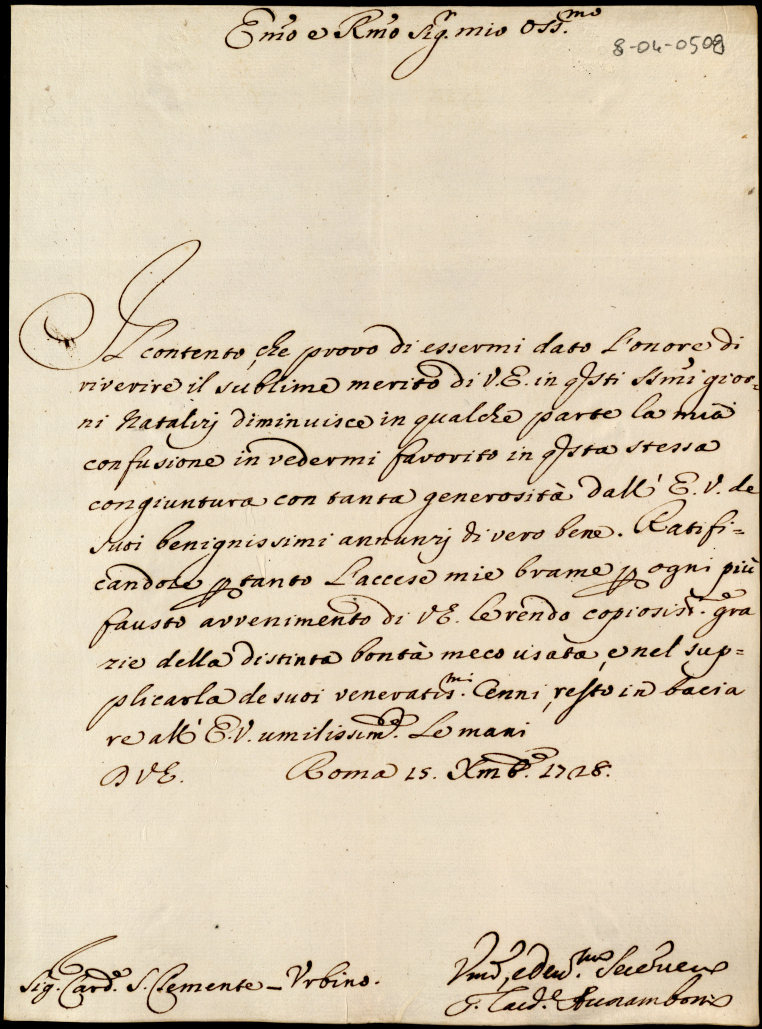 Em̄o e Rm̄o Sig.r mio Oss.mo
8-04-0508
Il contento, che provo di essermi dato l'onore di
riverire il sublime merito di V.E. in qsti ssm̄i gior-
ni Natalizj diminuisce in qualche parte la mia
confusione in vedermi favorito in qsta stessa
congiuntura con tanta generosità dall' E.V. de
suoi benignissimi annunzj di vero bene. Ratifi=
candole p tanto l'accese mie brame p ogni più
fausto avvenimento di V.E. le rendo copiosis.e gra
zie della distinta bontà meco usata, e nel sup=
plicarla de suoi veneratis.mi Cenni, resto in bacia
re all' E.V. umilissim.e Le mani
D V.E. Roma 15. Xmb.e 1728.
Sig. Card.e S. Clemente - Urbino.
e Dev.mo
Card.e